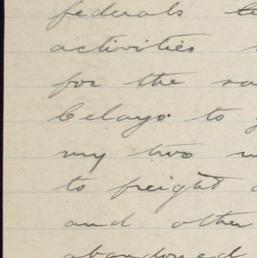 federals
activities
for the
Celayo to
my two
to freight
and other
abandoned